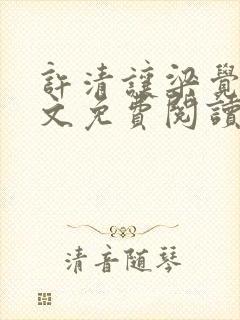 許清讓梁覺
文免費閱讀
清音随琴